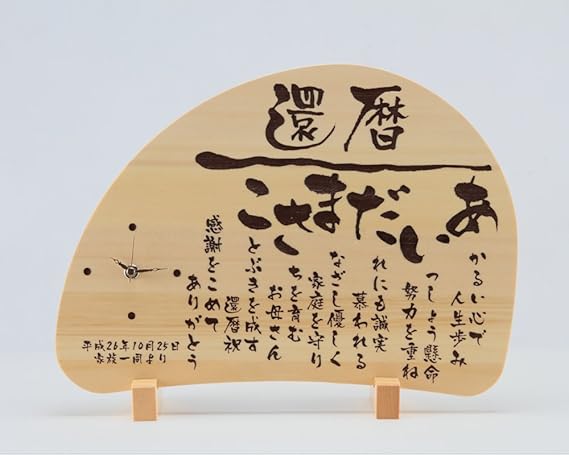 還暦
あかるい心で
人生歩み
いつしょう懸命
努力を重ね
だれにも誠実
慕われる
まなざし優しく
家庭を守り
さちを育む
お母さん
ことぶきを成す
還暦祝
感謝をこめて
ありがとう
平成26年10月25日
家族一同より